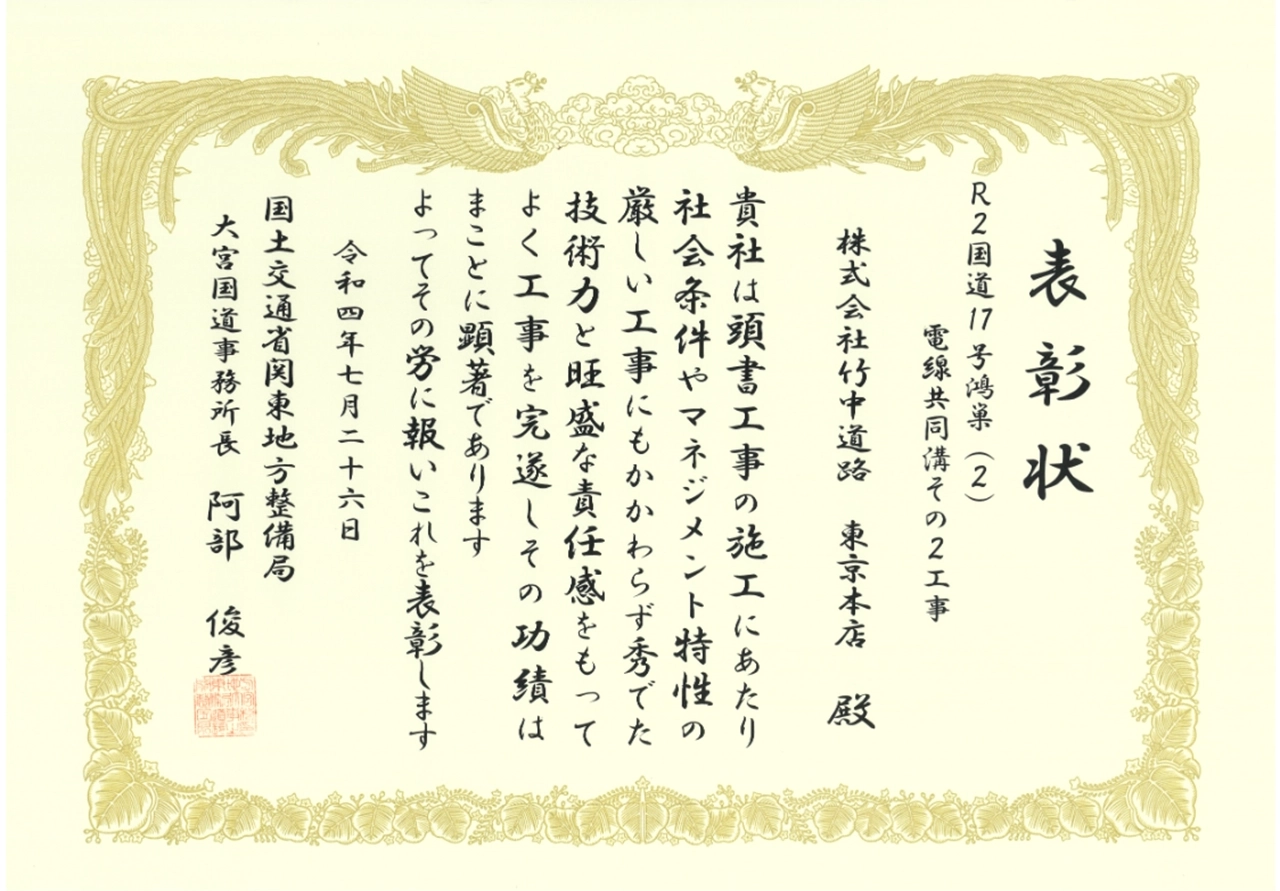 表彰状
R2国道17号鴻巣(2)
電線共同溝その2工事
株式会社竹中道路 東京本店 殿
貴社は頭書工事の施工にあたり
社会条件やマネジメント特性の
厳しい工事にもかかわらず秀でた
技術力と旺盛な責任感をもって
よく工事を完遂しその功績は
まことに顕著であります
よってその労に報いこれを表彰します
令和四年七月二十六日
国土交通省関東地方整備局
大宮国道事務所長 阿部 俊彦